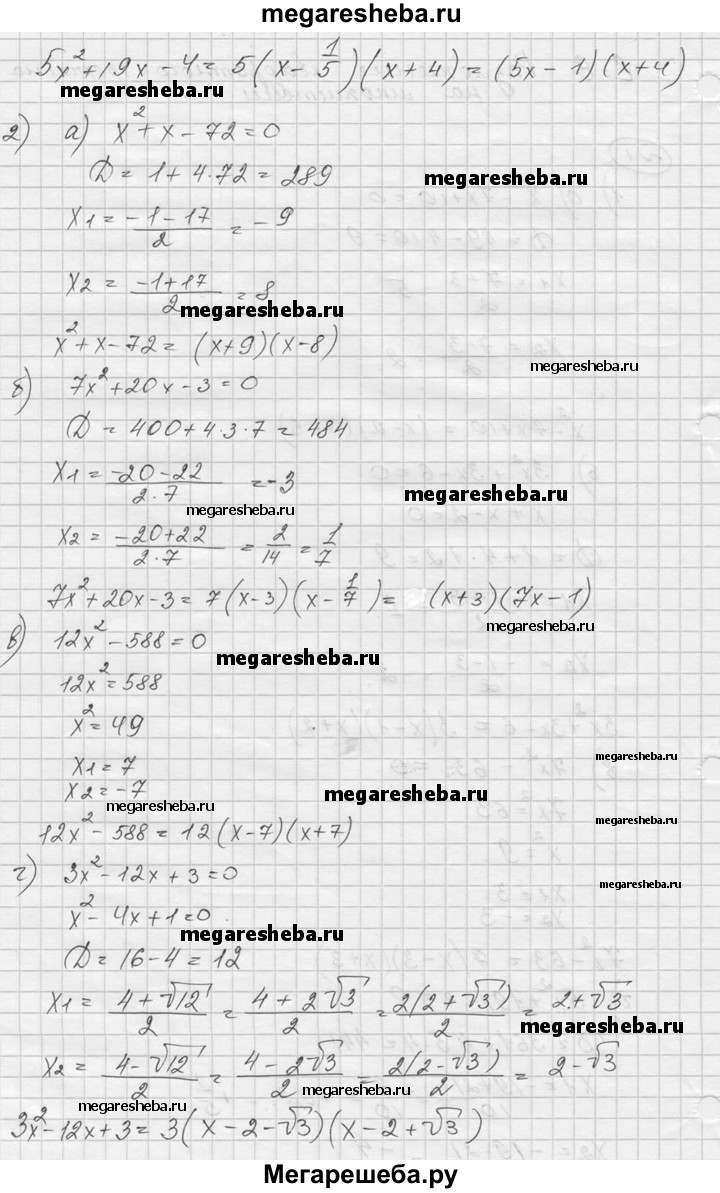 megaresheba.ru
5x² + 19x - 4 = 5(x - 1/5)(x + 4) = (5x - 1)(x + 4)
megaresheba.ru
2) а) x² + x - 72 = 0
D = 1 + 4·72 = 289
megaresheba.ru
x1 = (-1 - 17)/2 = -9
x2 = (-1 + 17)/2 = 8
megaresheba.ru
x² + x - 72 = (x + 9)(x - 8)
megaresheba.ru
б) 7x² + 20x - 3 = 0
D = 400 + 4·3·7 = 484
x1 = (-20 - 22)/(2·7) = -3
megaresheba.ru
megaresheba.ru
x2 = (-20 + 22)/(2·7) = 2/14 = 1/7
7x² + 20x - 3 = 7(x - 3)(x - 1/7) = (x + 3)(7x - 1)
megaresheba.ru
в) 12x² - 588 = 0
megaresheba.ru
12x² = 588
x² = 49
megaresheba.ru
x1 = 7
x2 = -7
megaresheba.ru
megaresheba.ru
megaresheba.ru
12x² - 588 = 12(x - 7)(x + 7)
г) 3x² - 12x + 3 = 0
megaresheba.ru
x² - 4x + 1 = 0
megaresheba.ru
D = 16 - 4 = 12
x1 = (4 + √12)/2 = (4 + 2√3)/2 = 2(2 + √3)/2 = 2 + √3
megaresheba.ru
x2 = (4 - √12)/2 = (4 - 2√3)/2 = 2(2 - √3)/2 = 2 - √3
megaresheba.ru
megaresheba.ru
3x² - 12x + 3 = 3(x - 2 - √3)(x - 2 + √3)
Мегарешеба.ру